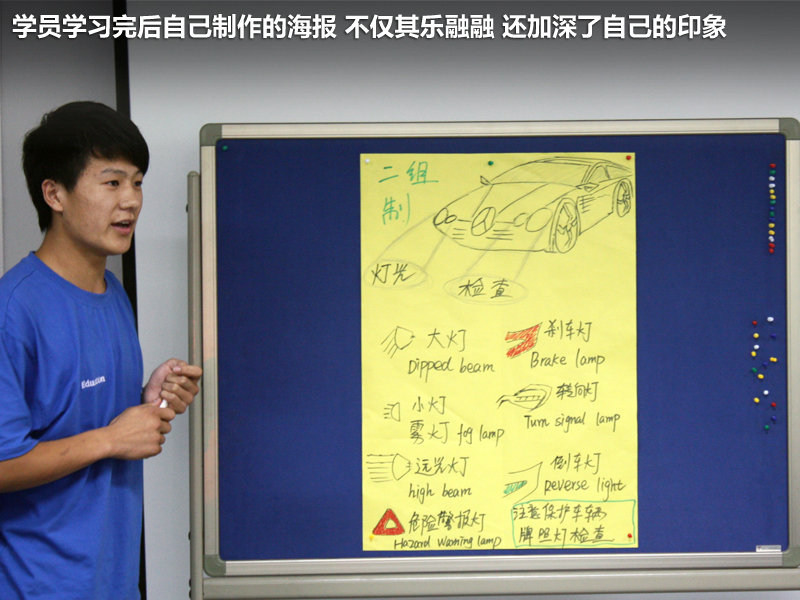 学员学习完后自己制作的海报 不仅其乐融融 还加深了自己的印象
二组
制
灯光
检查
大灯
Dipped beam
刹车灯
Brake lamp
小灯
雾灯 fog lamp
转向灯
Turn signal lamp
远光灯
high beam
倒车灯
reverse light
危险警报灯
Hazard Warning lamp
注意保护车辆
牌照灯检查
Education